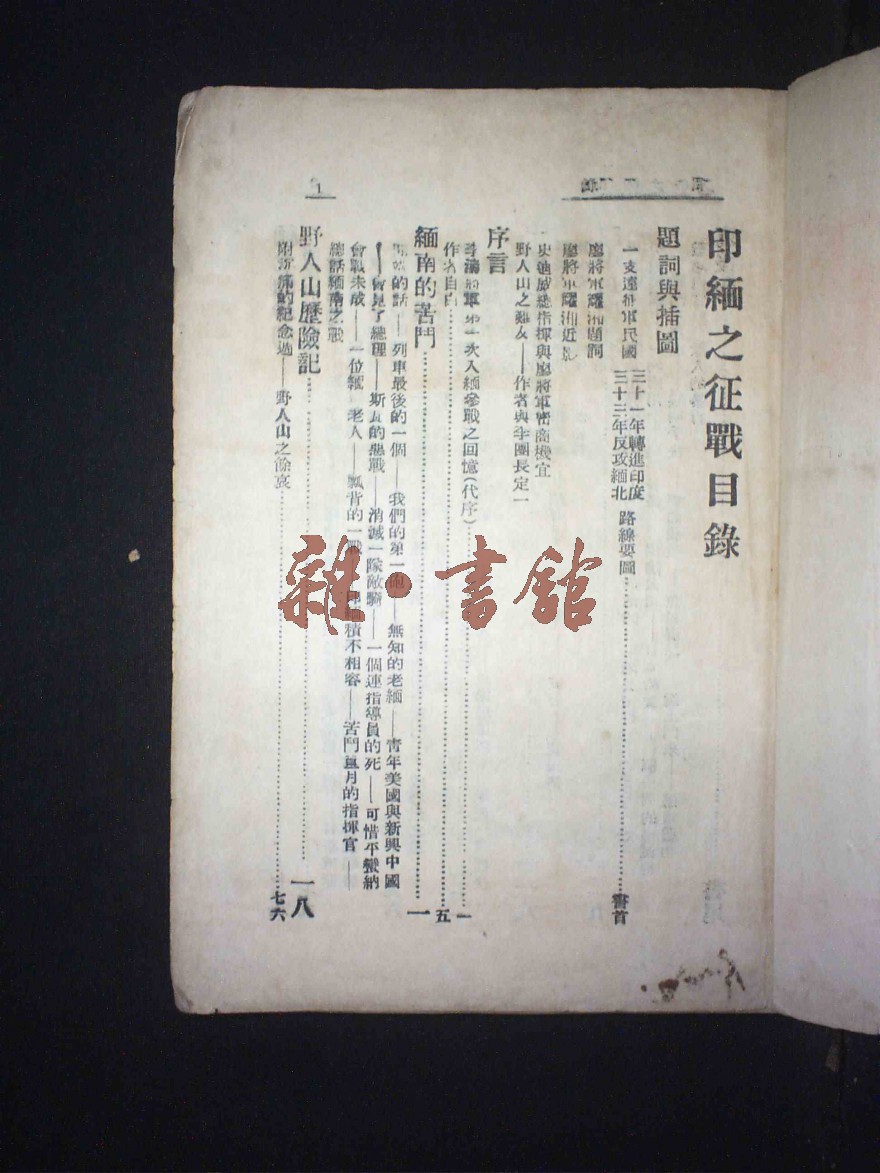 印緬之征戰目錄
題詞與插圖
一支遠征軍民國 三十一年轉進印度 三十三年反攻緬北 路線要圖 書首
廖將軍耀湘題詞
廖將軍耀湘近影
史迪威總指揮與廖將軍密商機宜
野人山之難友——作者與李團長定一
序言
將軍第一次入緬參戰之回憶(代序) 一
作者自白 五
緬南的苦鬥 一
的話——列車最後的一個——我們的第一——無知的老緬——青年美國與新興中國
——會見了總理——斯瓦的惡戰——消滅一隊敵騎——一個連指導員的死——可惜平蠻納
會戰未成——一位緬 老人——瓢背的一戰——積不相容——苦鬥 月的指揮官——
總話緬南之戰
野人山歷險記 一八
附 的紀念過——野人山之餘哀 七六
1
雜·書館